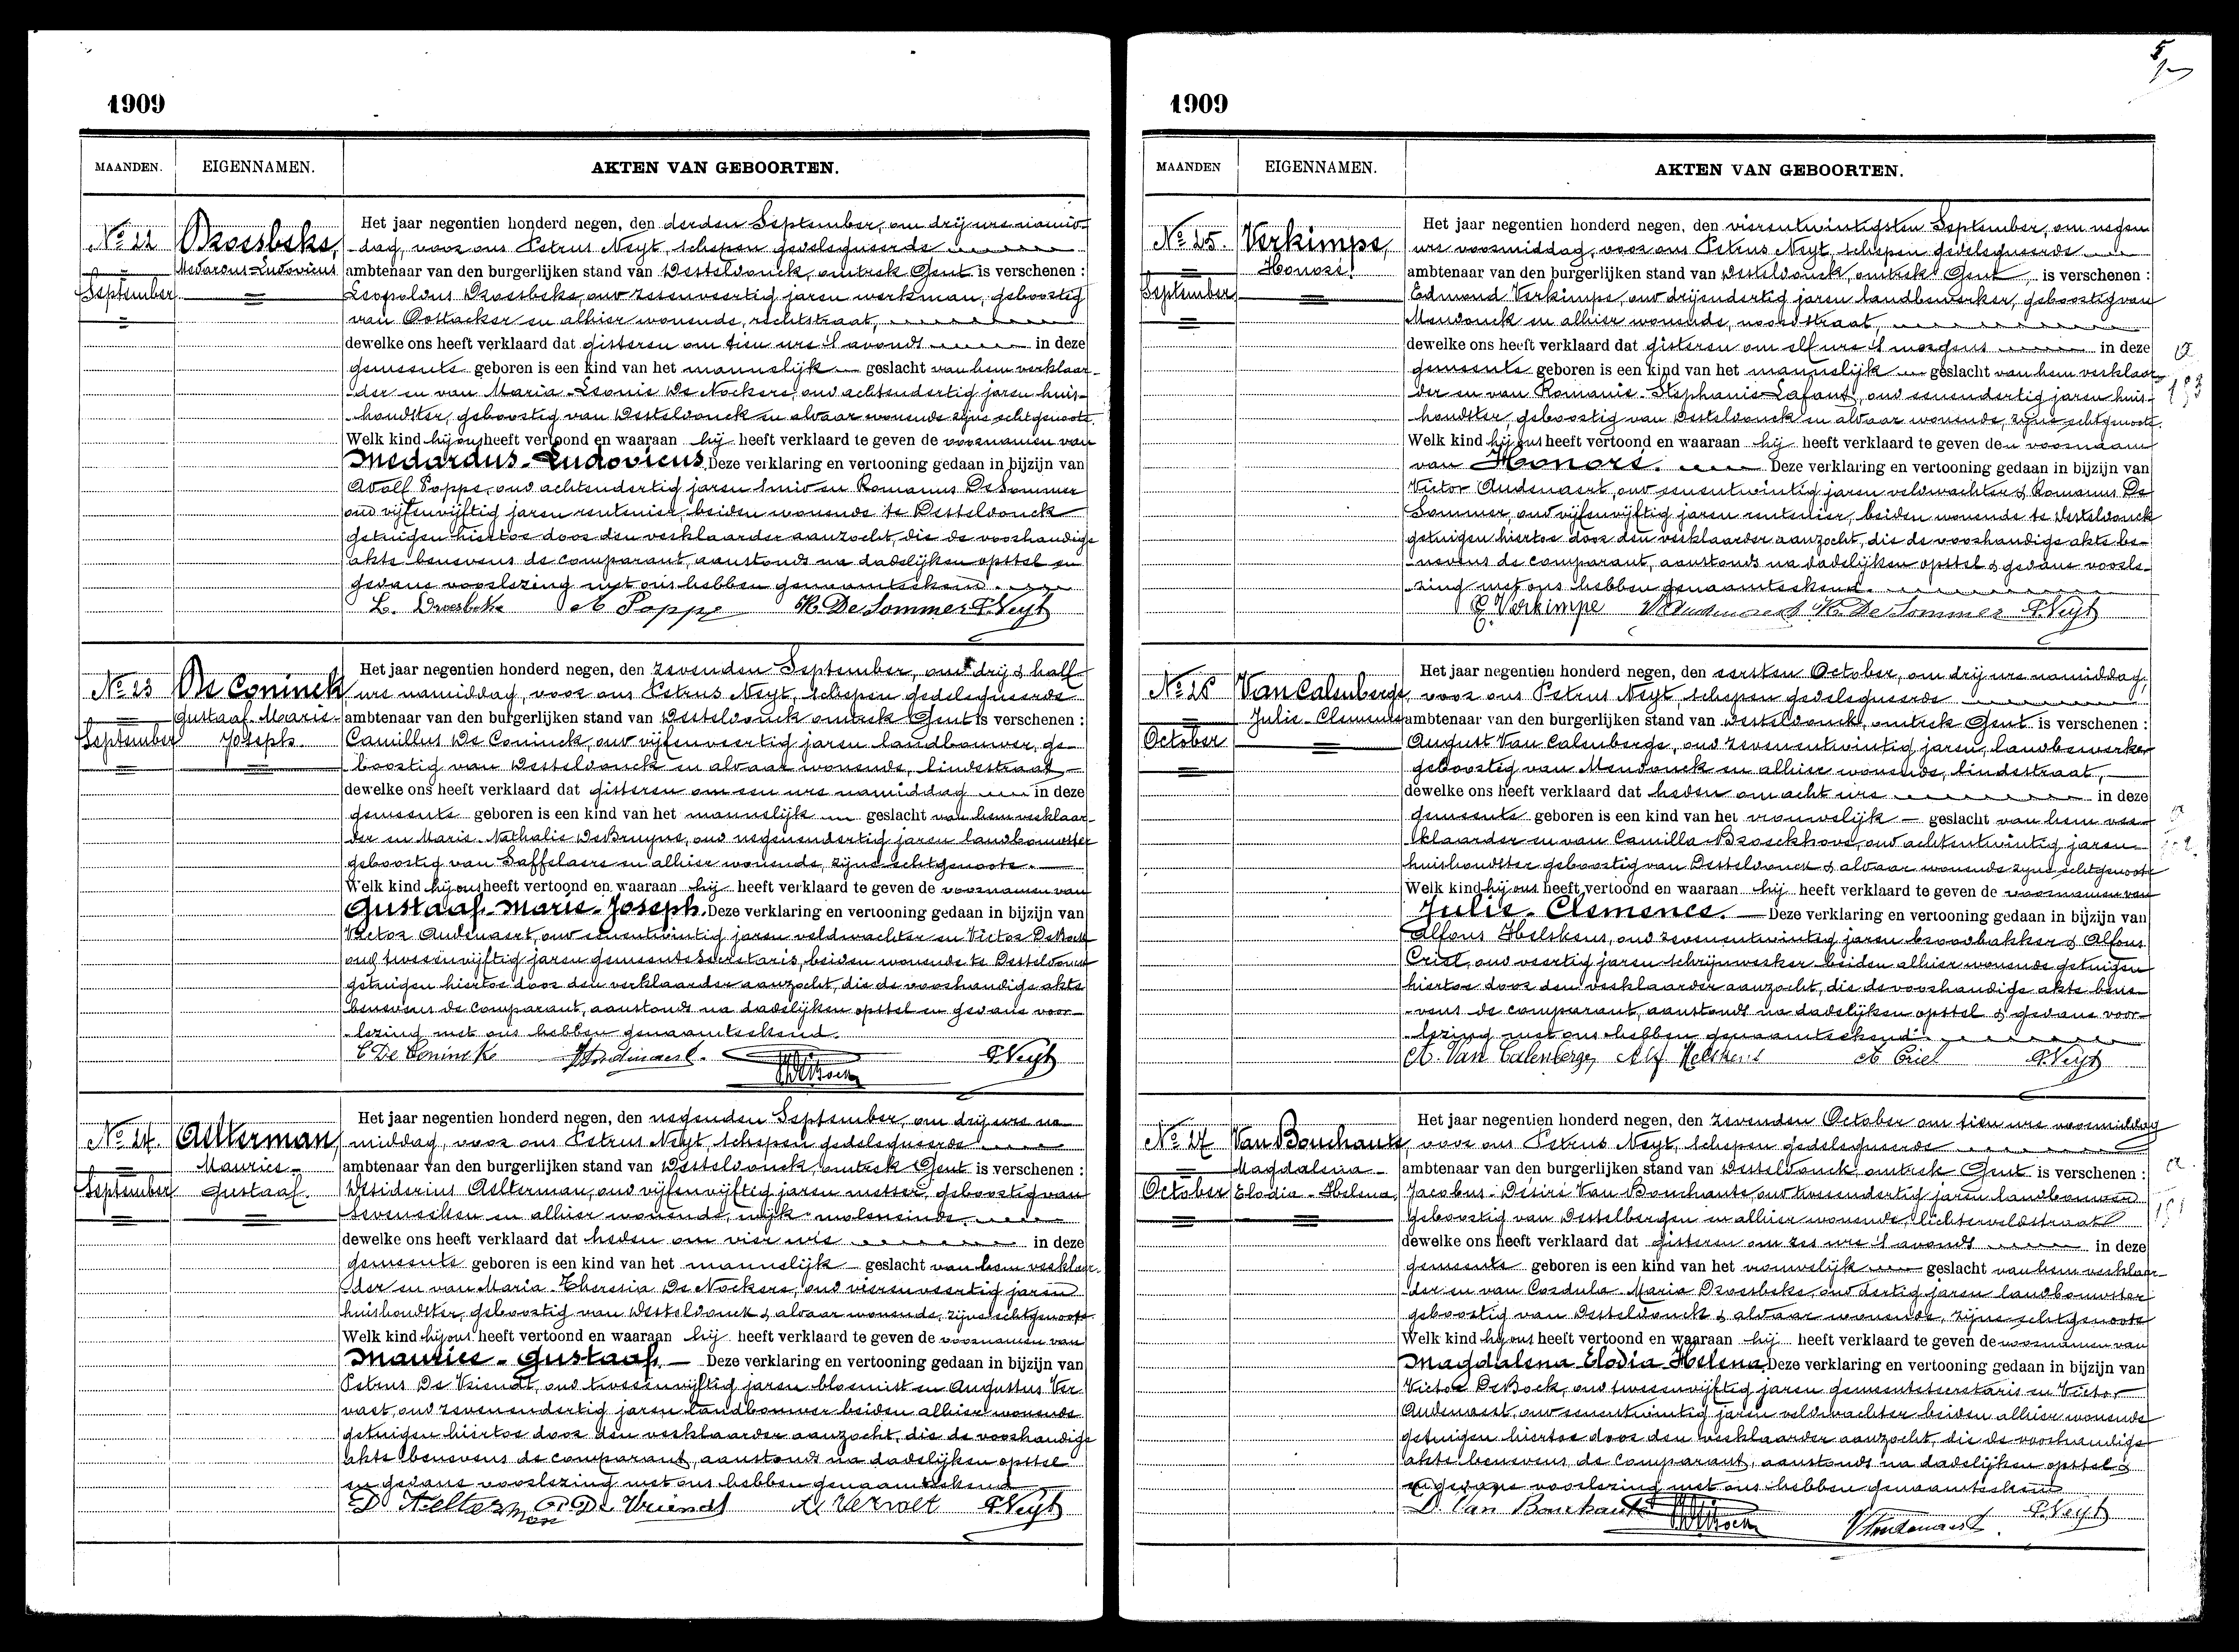 1909
MAANDEN. EIGENNAMEN. AKTEN VAN GEBOORTEN.
Nº 22
September
Droesbeke,
Medardus-Ludovicus
Het jaar negentien honderd negen, den derden September, om drij ure namid-
dag, voor ons Petrus Neyt, schepen gedelegueerde
ambtenaar van den burgerlijken stand van Desteldonck, omtrek Gent is verschenen :
Leopoldus Droesbeke, oud zesenveertig jaren werkman, geboortig
van Oostacker en alhier wonende, rechtstraat,
dewelke ons heeft verklaard dat gisteren om tien ure 's avonds in deze
gemeente geboren is een kind van het mannelijk geslacht van hem verklaar-
der en van Maria-Leonie De Nockere, oud achtendertig jaren huis-
houdster, geboortig van Desteldonck en aldaar wonende zijne echtgenoote.
Welk kind hij ons heeft vertoond en waaraan hij heeft verklaard te geven de voornamen van
Medardus-Ludovicus. Deze verklaring en vertooning gedaan in bijzijn van
Adolf Poppe, oud achtendertig jaren smid en Romanus De Sommer
oud vijfenvijftig jaren rentenier, beiden wonende te Desteldonck
getuigen hiertoe door den verklaarder aanzocht, die de voorhandige
akte benevens de comparant, aanstonds na dadelijken opstel en
gedane voorlezing met ons hebben genaamteekend.
L. Droesbeke A Poppe R. De Sommer P. Neyt
Nº 23
September
De Coninck
Gustaaf-Marie-
Joseph.
Het jaar negentien honderd negen, den zevenden September, om drij & half
ure namiddag, voor ons Petrus Neyt, schepen gedelegueerde
ambtenaar van den burgerlijken stand van Desteldonck omtrek Gent is verschenen :
Camillus De Coninck, oud vijfenveertig jaren landbouwer, ge-
boortig van Desteldonck en aldaar wonende, lindestraat
dewelke ons heeft verklaard dat gisteren om een ure namiddag in deze
gemeente geboren is een kind van het mannelijk geslacht van hem verklaar-
der en Marie-Nathalie DeBruyne, oud negenendertig jaren landbouwster
geboortig van Saffelaere en alhier wonende, zijne echtgenoote.
Welk kind hij ons heeft vertoond en waaraan hij heeft verklaard te geven de voornamen van
Gustaaf-Marie-Joseph. Deze verklaring en vertooning gedaan in bijzijn van
Victor Audenaert, oud eenentwintig jaren veldwachter en Victor DeBock
oud tweeenvijftig jaren gemeentesecretaris, beiden wonende te Desteldonck
getuigen hiertoe door den verklaarder aanzocht, die de voorhandige akte
benevens de comparant, aanstonds na dadelijken opstel en gedane voor-
lezing met ons hebben genaamteekend.
C De Coninck VAudenaert. P. Neyt
Nº 24.
September
Aelterman,
Maurice-
Gustaaf.
Het jaar negentien honderd negen, den negenden September, om drij ure na-
middag, voor ons Petrus Neyt, schepen gedelegueerde
ambtenaar van den burgerlijken stand van Desteldonck, omtrek Gent is verschenen :
Desiderius Aelterman, oud vijfenvijftig jaren metser, geboortig van
Seveneeken en alhier wonende, wijk moleneinde.
dewelke ons heeft verklaard dat heden om vier ure in deze
gemeente geboren is een kind van het mannelijk geslacht van hem verklaar-
der en van Maria-Theresia De Nockere, oud vierenveertig jaren
huishoudster, geboortig van Desteldonck & aldaar wonende, zijne echtgenoote.
Welk kind hij ons heeft vertoond en waaraan hij heeft verklaard te geven de voornamen van
Maurice-Gustaaf. Deze verklaring en vertooning gedaan in bijzijn van
Petrus De Vriendt, oud tweeenvijftig jaren bloemist en Augustus Ver-
vaet, oud zevenendertig jaren landbouwer beiden alhier wonende
getuigen hiertoe door den verklaarder aanzocht, die de voorhandige
akte benevens de comparant, aanstonds na dadelijken opstel
en gedane voorlezing met ons hebben genaamteekend
D Aelterman P. De Vriendt A. Vervaet P. Neyt
1909
MAANDEN EIGENNAMEN. AKTEN VAN GEBOORTEN.
Nº 25.
September
Verkimpe,
Honoré.
Het jaar negentien honderd negen, den vierentwintigsten September, om negen
ure voormiddag, voor ons Petrus Neyt, schepen gedelegueerde
ambtenaar van den burgerlijken stand van Desteldonck, omtrek Gent, is verschenen :
Edmond Verkimpe, oud drijendertig jaren landbewerker, geboortig van
Mendonck en alhier wonende, noordstraat,
dewelke ons heeft verklaard dat gisteren om elf ure 's morgens in deze
gemeente geboren is een kind van het mannelijk geslacht van hem verklaar-
der en van Romanie-Stephanie Lafaut, oud eenendertig jaren huis-
houdster, geboortig van Desteldonck en aldaar wonende, zijne echtgenoote.
Welk kind hij ons heeft vertoond en waaraan hij heeft verklaard te geven den voornaam
van Honoré. Deze verklaring en vertooning gedaan in bijzijn van
Victor Audenaert, oud eenentwintig jaren veldwachter & Romanus De
Sommer, oud vijfenvijftig jaren rentenier, beiden wonende te Desteldonck
getuigen hiertoe door den verklaarder aanzocht, die de voorhandige akte be-
nevens de comparant, aanstonds na dadelijken opstel & gedane voorle-
zing met ons hebben genaamteekend.
E. Verkimpe VAudenaert R. De Sommer P. Neyt
Nº 26
October
Van Calenberge,
Julie-Clemence
Het jaar negentien honderd negen, den eersten October, om drij ure namiddag,
voor ons Petrus Neyt, schepen gedelegueerde
ambtenaar van den burgerlijken stand van Desteldonck, omtrek Gent is verschenen :
August Van Calenberge, oud zevenentwintig jaren, landbewerker
geboortig van Mendonck en alhier wonende, lindestraat,
dewelke ons heeft verklaard dat heden om acht ure in deze
gemeente geboren is een kind van het vrouwelijk geslacht van hem ver-
klaarder en van Camilla Broeckhove, oud achtentwintig jaren
huishoudster geboortig van Desteldonck & aldaar wonende zijne echtgenoote
Welk kind hij ons heeft vertoond en waaraan hij heeft verklaard te geven de voornamen van
Julie-Clemence. Deze verklaring en vertooning gedaan in bijzijn van
Alfons Helskens, oud zevenentwintig jaren broodbakker & Alfons
Criel, oud veertig jaren schrijnwerker beiden alhier wonende getuigen
hiertoe door den verklaarder aanzocht, die de voorhandige akte bene-
vens de comparant, aanstonds na dadelijken opstel & gedane voor-
lezing met ons hebben genaamteekend.
A. Van Calenberge, Alf Helskens A Criel P. Neyt
Nº 27
October
Van Bouchaute,
Magdalena-
Elodia-Helena,
Het jaar negentien honderd negen, den zevenden October om tien ure voormiddag
voor ons Petrus Neyt, schepen gedelegueerde
ambtenaar van den burgerlijken stand van Desteldonck, omtrek Gent is verschenen :
Jacobus-Désiré Van Bouchaute, oud tweeendertig jaren landbouwer
geboortig van Destelbergen en alhier wonende, lichterveldstraat
dewelke ons heeft verklaard dat gisteren om zes ure 's avonds in deze
gemeente geboren is een kind van het vrouwelijk geslacht van hem verklaar-
der en van Cordula-Maria Droesbeke, oud dertig jaren landbouwster
geboortig van Desteldonck & aldaar wonende, zijne echtgenoote
Welk kind hij ons heeft vertoond en waaraan hij heeft verklaard te geven de voornamen van
Magdalena Elodia Helena. Deze verklaring en vertooning gedaan in bijzijn van
Victor DeBock, oud tweeenvijftig jaren gemeentesecretaris en Victor
Audenaert, oud eenentwintig jaren veldwachter beiden alhier wonende
getuigen hiertoe door den verklaarder aanzocht, die de voorhandige
akte benevens de comparant, aanstonds na dadelijken opstel &
en gedane voorlezing met ons hebben genaamteekend
D. Van Bouchaute VAudenaert. P. Neyt